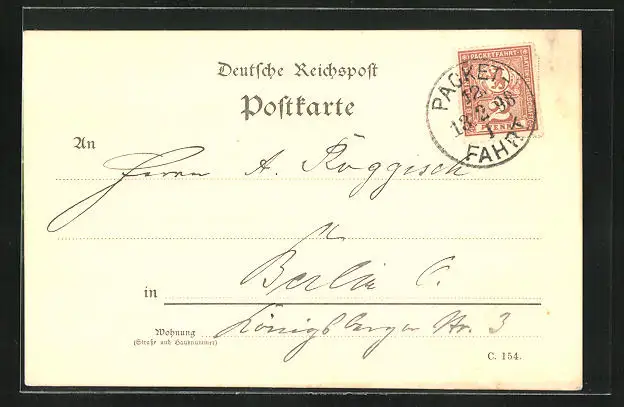 Deutsche Reichspost
Postkarte
PACKETFAHRT
PFENNIG
PACKET-
12.
13.2.98
1
FAHRT
An
Herrn A. Röggisch
in Berlin C.
Wohnung Königsberger Str. 3
(Straße und Hausnummer)
C. 154.